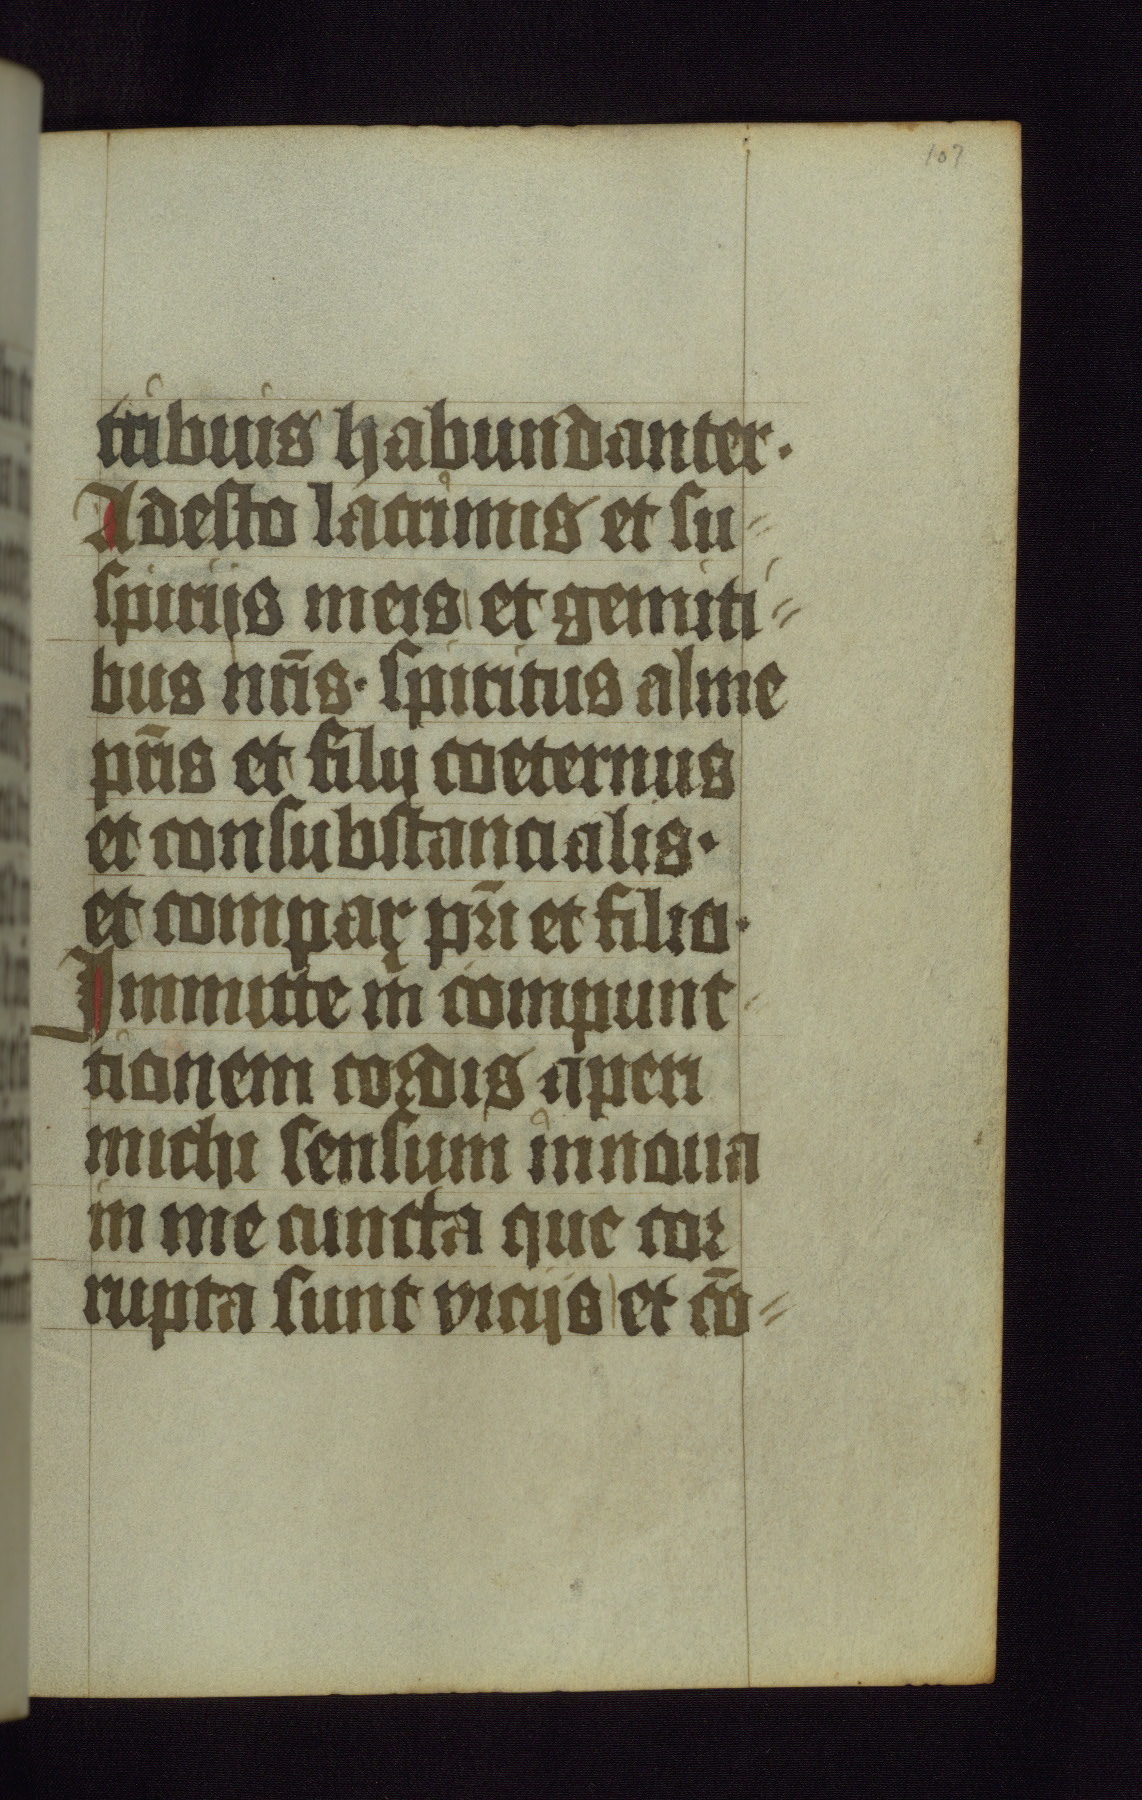 107
tribuis habundanter.
Adesto lacrimis et su=
spirijs meis et gemiti=
bus nr̄is. spiritus alme
pr̄is et filij coeternus
et consubstancialis.
et compar pr̄i et filio.
Immitte in compunc
tionem cordis aperi
michi sensum innoua
in me cuncta que cor
rupta sunt vicijs et cō=